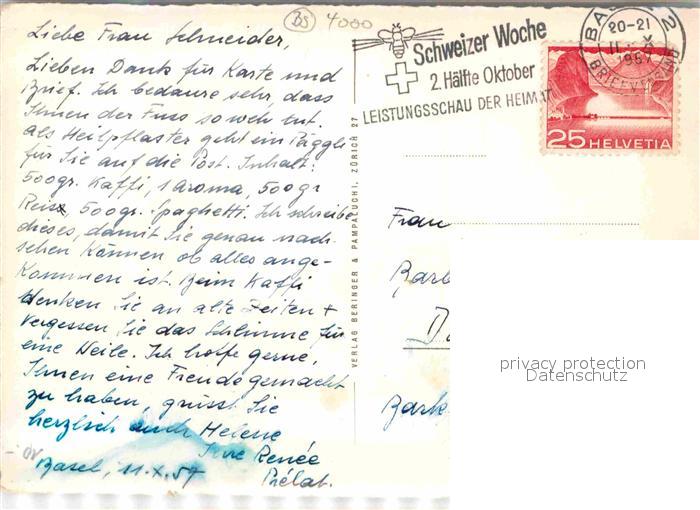 BS 4000
Liebe Frau Schneider,
Lieben Dank für Karte und
Brief. Ich bedaure sehr, dass
Ihnen der Fuss so weh tut.
Als Heilpflaster geht ein Päggli
für Sie auf die Post. Inhalt:
500gr. Kaffi, 1 Aroma, 500gr
Reis, 500gr. Spaghetti. Ich schreibe
dieses, damit Sie genau nach-
sehen können ob alles ange-
kommen ist. Beim Kaffi
denken Sie an alte Zeiten +
vergessen Sie das Schlimme für
eine Weile. Ich hoffe gerne,
Ihnen eine Freude gemacht
zu haben, grüsst Sie
herzlich auch Helene
Ihre Renée
Basel, 11.X.57
VERLAG BERINGER & PAMPALUCHI, ZÜRICH 27
Schweizer Woche
2. Hälfte Oktober
LEISTUNGSSCHAU DER HEIMAT
BAS 2
20-21
1957
BRIEFVERSAND
25 HELVETIA
Frau
privacy protection
Datenschutz